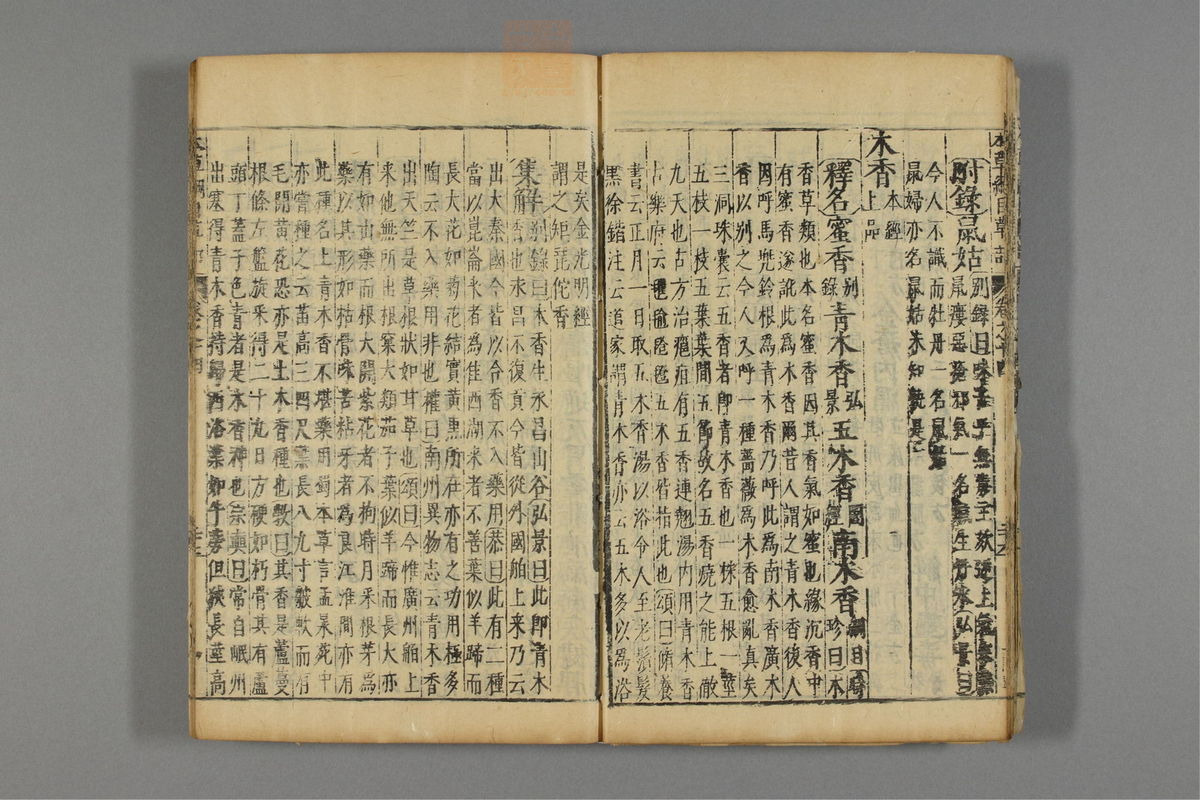 附錄鼠姑別錄曰味苦平無毒主欬逆上氣寒熱
鼠瘻惡瘡邪氣一名生弘景曰
今人不識而牡丹一名鼠姑
鼠婦亦名鼠姑未知孰是
木香本經上品
釋名蜜香別錄青木香弘景五木香圖經南木香綱目時珍曰木
香草類也本名蜜香因其香氣如蜜也緣沉香中
有蜜香遂訛此為木香爾昔人謂之青木香後人
因呼馬兜鈴根為青木香乃呼此為南木香廣木
香以別之今人又呼一種薔薇為木香愈亂真矣
三洞珠囊云五香者即青木香也一株五根一莖
五枝一枝五葉葉間五節故名五香燒之能上徹
九天也古方治癰疽有五香連翹湯內用青木香
古樂府云氍毹㲪五木香皆指此也頌曰修養
書云正月一日取五木香湯以浴令人至老鬚髮
黑徐鍇注云道家謂青木香亦云五木多以為浴
是矣金光明經
謂之矩琵佗香
集解別錄曰木香生永昌山谷弘景曰此即青木
香也永昌不復貢今皆從外國舶上來乃云
出大秦國今皆以合香不入藥用恭曰此有二種
當以昆崙來者為佳西湖來者不善葉似羊蹄而
長大花如菊花結實黃黑所在亦有之功用極多
陶云不入藥用非也權曰南州異物志云青木香
出天竺是草根狀如甘草也頌曰今惟廣州舶上
來他無所出根窠大類茄子葉似羊蹄而長大亦
有如山藥而根大開紫花者不拘時月采根芽為
藥以其形如枯骨味苦粘牙者為良江淮間亦有
此種名土青木香不堪藥用蜀本草言孟昶苑中
亦嘗種之云苗高三四尺葉長八九寸皺軟而有
毛開黃花恐亦是土木香種也斅曰其香是蘆蔓
根條左盤旋采得二十九日方硬如朽骨其有蘆
頭丁蓋子色青者是木香神也宗奭曰常自岷州
出塞得青木香持歸西洛葉如牛蒡但狹長莖高